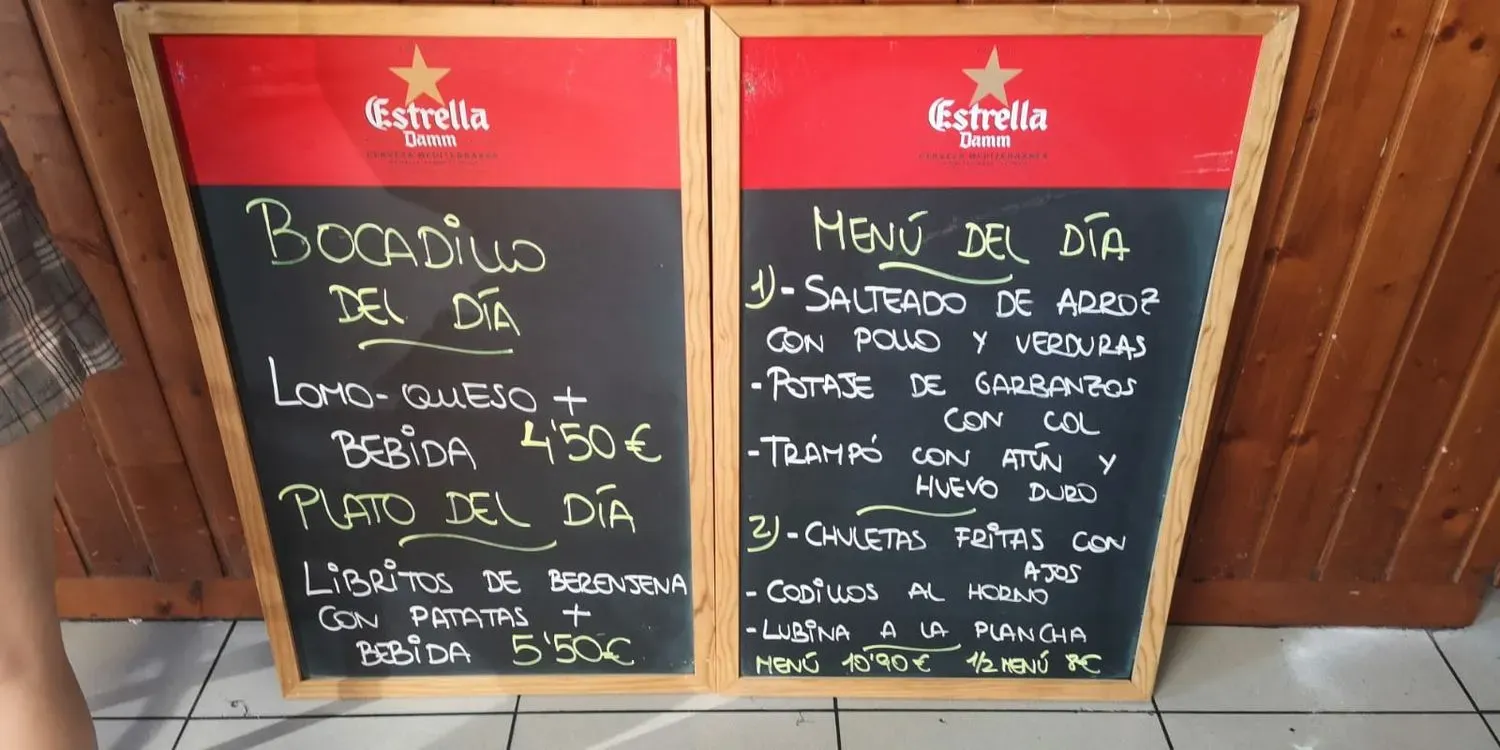 Estrella
Damm
CERVEZA MEDITERRÁNEA
BOCADILLO
DEL DÍA
LOMO-QUESO +
BEBIDA 4'50€
PLATO DEL DÍA
LIBRITOS DE BERENJENA
CON PATATAS +
BEBIDA 5'50€
Estrella
Damm
CERVEZA MEDITERRÁNEA
MENÚ DEL DÍA
1)- SALTEADO DE ARROZ
CON POLLO Y VERDURAS
- POTAJE DE GARBANZOS
CON COL
- TRAMPÓ CON ATÚN Y
HUEVO DURO
2)- CHULETAS FRITAS CON
AJOS
- CODILLOS AL HORNO
- LUBINA A LA PLANCHA
MENÚ 10'90€ 1/2 MENÚ 8€